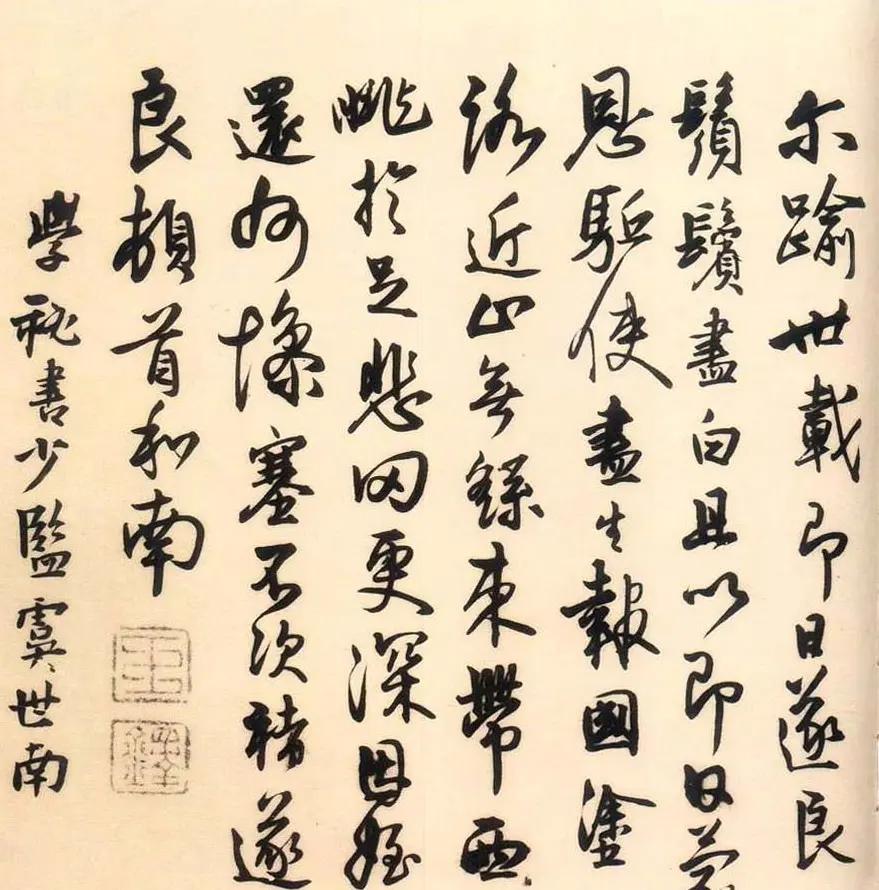 尔踰卅載即日遂良
鬚鬢盡白且以即日蒙
恩駈使盡生報國塗
路近止無繇束帶西
眺於足悲罔更深因姪
還州慘塞不次褚遂
良頓首和南
學秘書少監虞世南